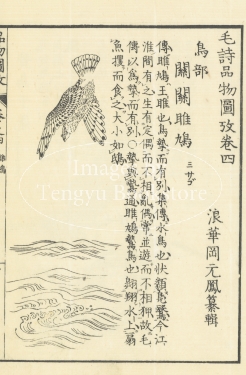 毛詩品物圖攷卷四
浪華岡元鳳纂輯
鳥部
關關雎鳩
ミサゴ
傳雎鳩王雎也鳥摯而有別集傳水鳥也狀類鳧鷖今江
淮間有之生有定偶而不相亂偶常並遊而不相狎故毛
傳以爲摯而有別○摯與鷙通雎鳩鷙鳥也翱翔水上扇
魚攫而食之大小如鴟
Tengyu